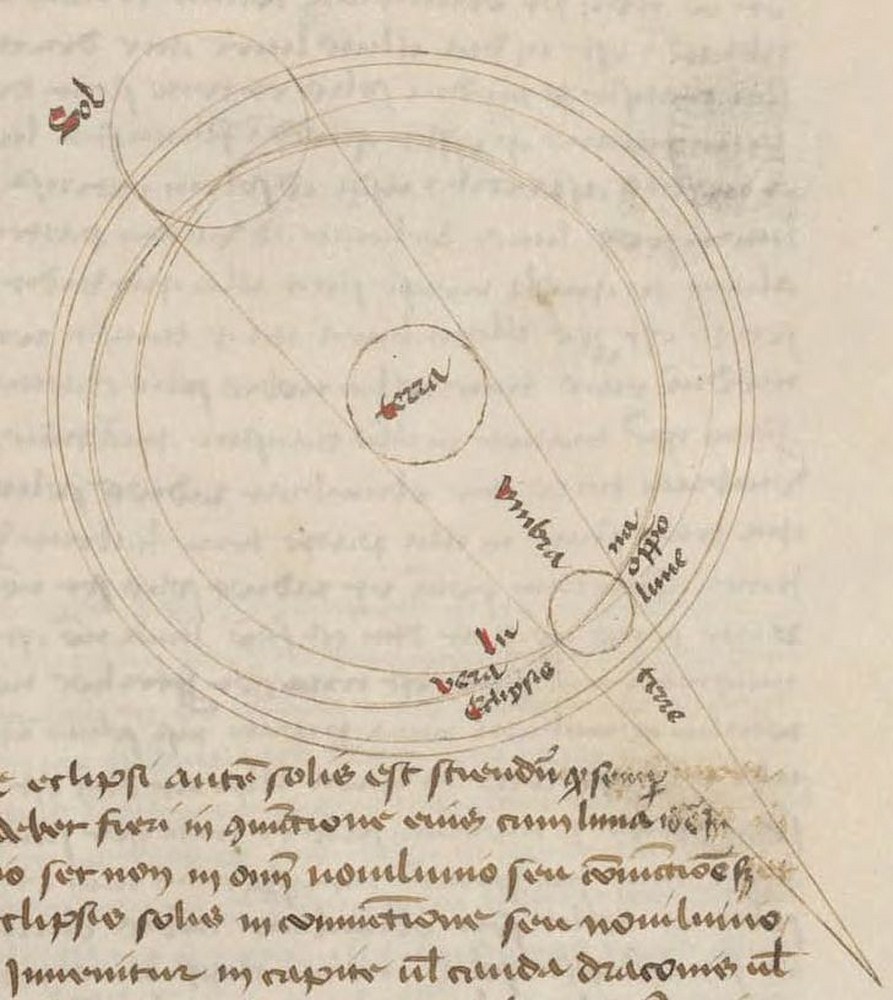 Sol
terra
Umbra
ma
oppo
lune
In
vera
Eclipsis
terre
eclipsi autē solis est sciendū ꝙ semꝑ
debet fieri in ꝯiunctione eius cum luna
set non in omni nouilunio seu cōiunctiōe
eclipsis solis in coniunctione seu nouilunio
Inuenitur in capite ul cauda draconis ul